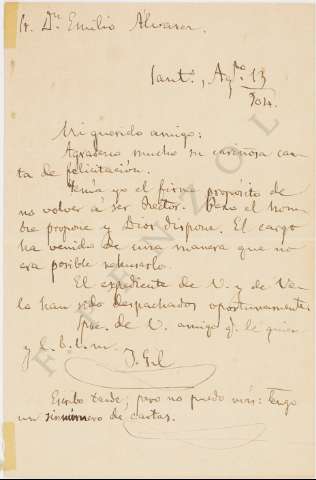 Sr. Dn. Emilio Álvarez.
Sant.º, Ag.to 13
904.
Mi querido amigo:
Agradezco mucho su cariñosa car-
ta de felicitación.
Tenía yo el firme propósito de
no volver á ser Rector. Pero el hom-
bre propone y Dios dispone. El cargo
ha venido de una manera que no
era posible rehusarlo.
El expediente de V. y de Va-
la han sido despachados oportunamente.
Sue. de V. amigo q. le quier
y l. b. l. m.
J. Gil
Escribo tarde; pero no puedo más: tengo
un sinnúmero de cartas.